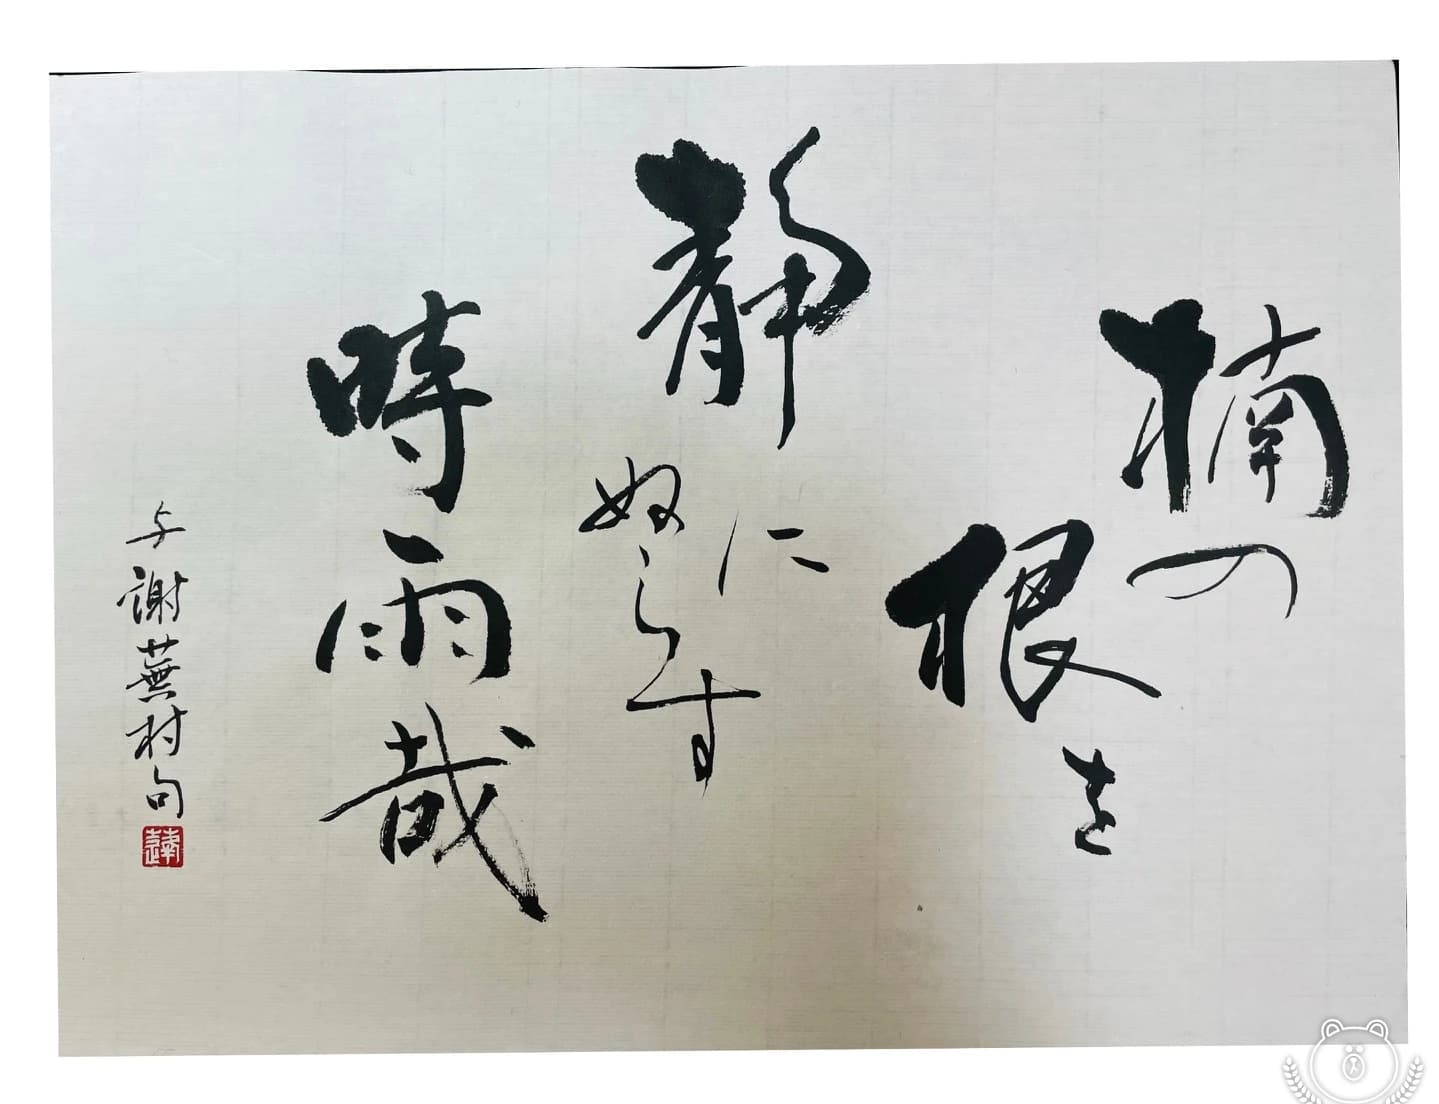 楠の
根を
静に
ぬらす
時雨哉
与謝蕪村句